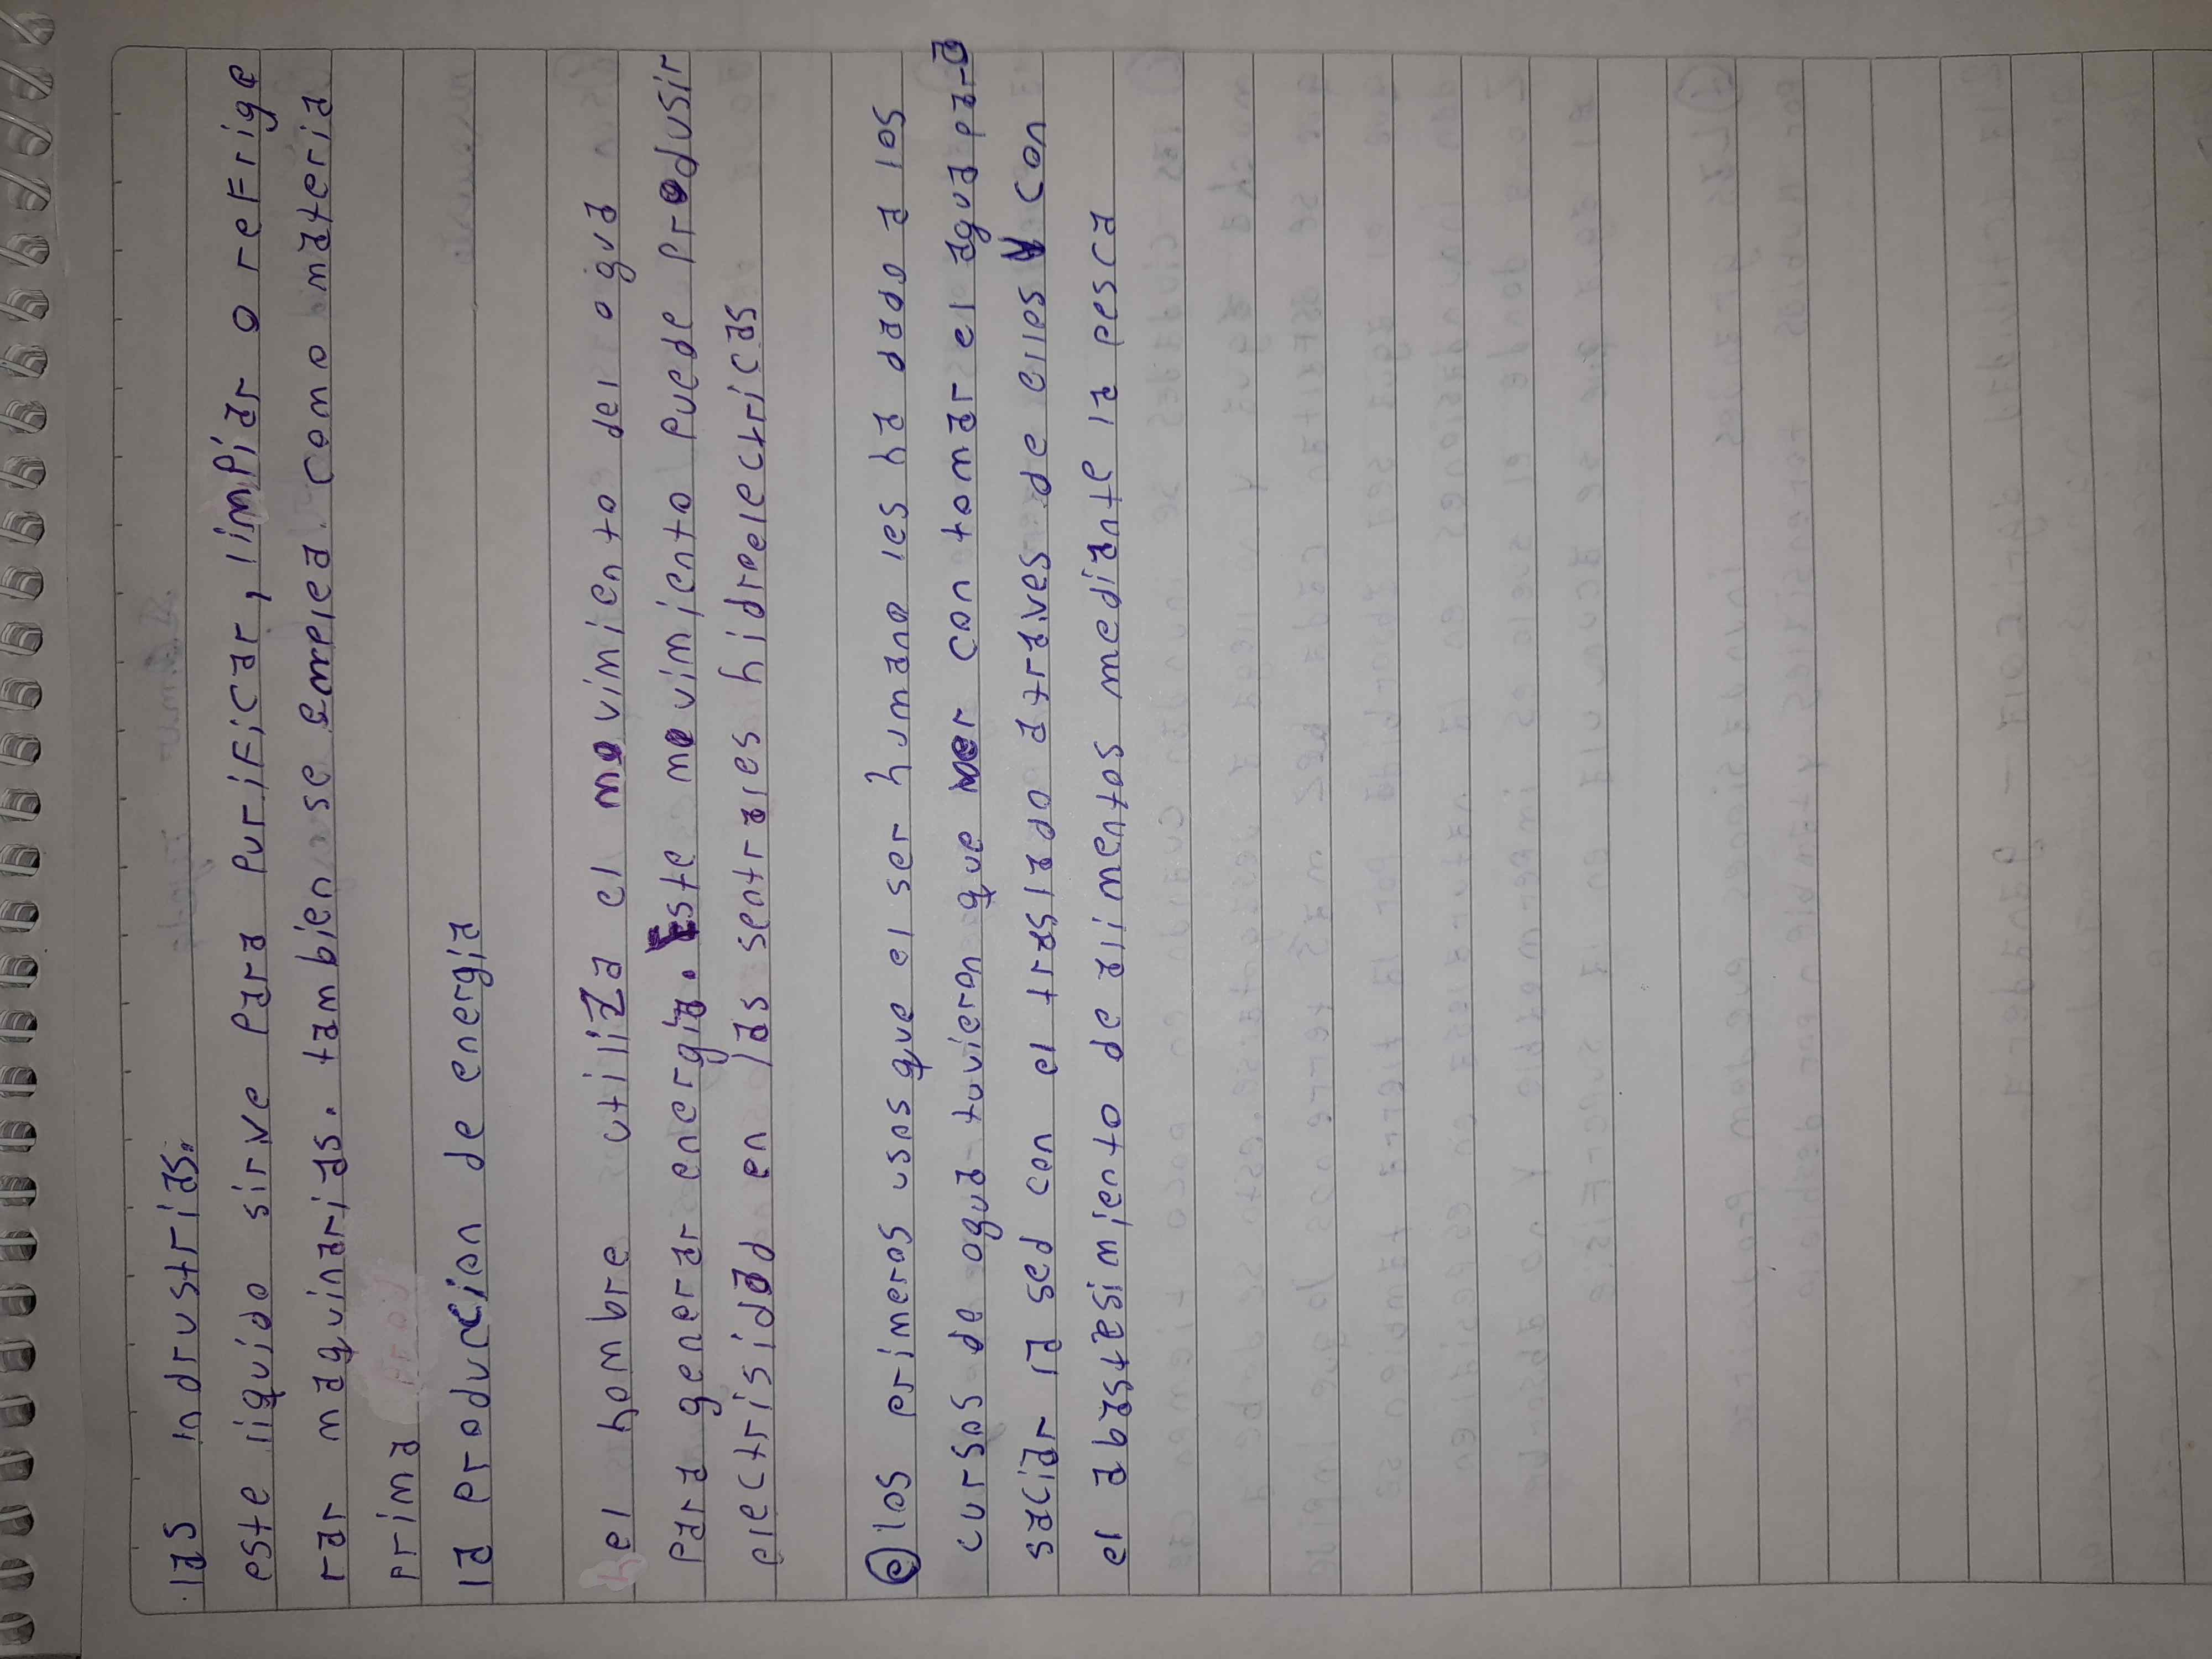 las indrustrias.
este liquido sirve para purificar, limpiar o refrige
rar maquinarias. tambien se emplea como materia
prima
la produccion de energia
el hombre utiliza el movimiento del agua
para generar energia. Este movimiento puede produsir
electrisidad en las sentrales hidroelectricas
e) los primeros usos que el ser humano les ha dado a los
cursos de agua tuvieron que ver con tomar el agua para
saciar la sed con el traslado atraves de elles y con
el abastasimiento de alimentos mediante la pesca